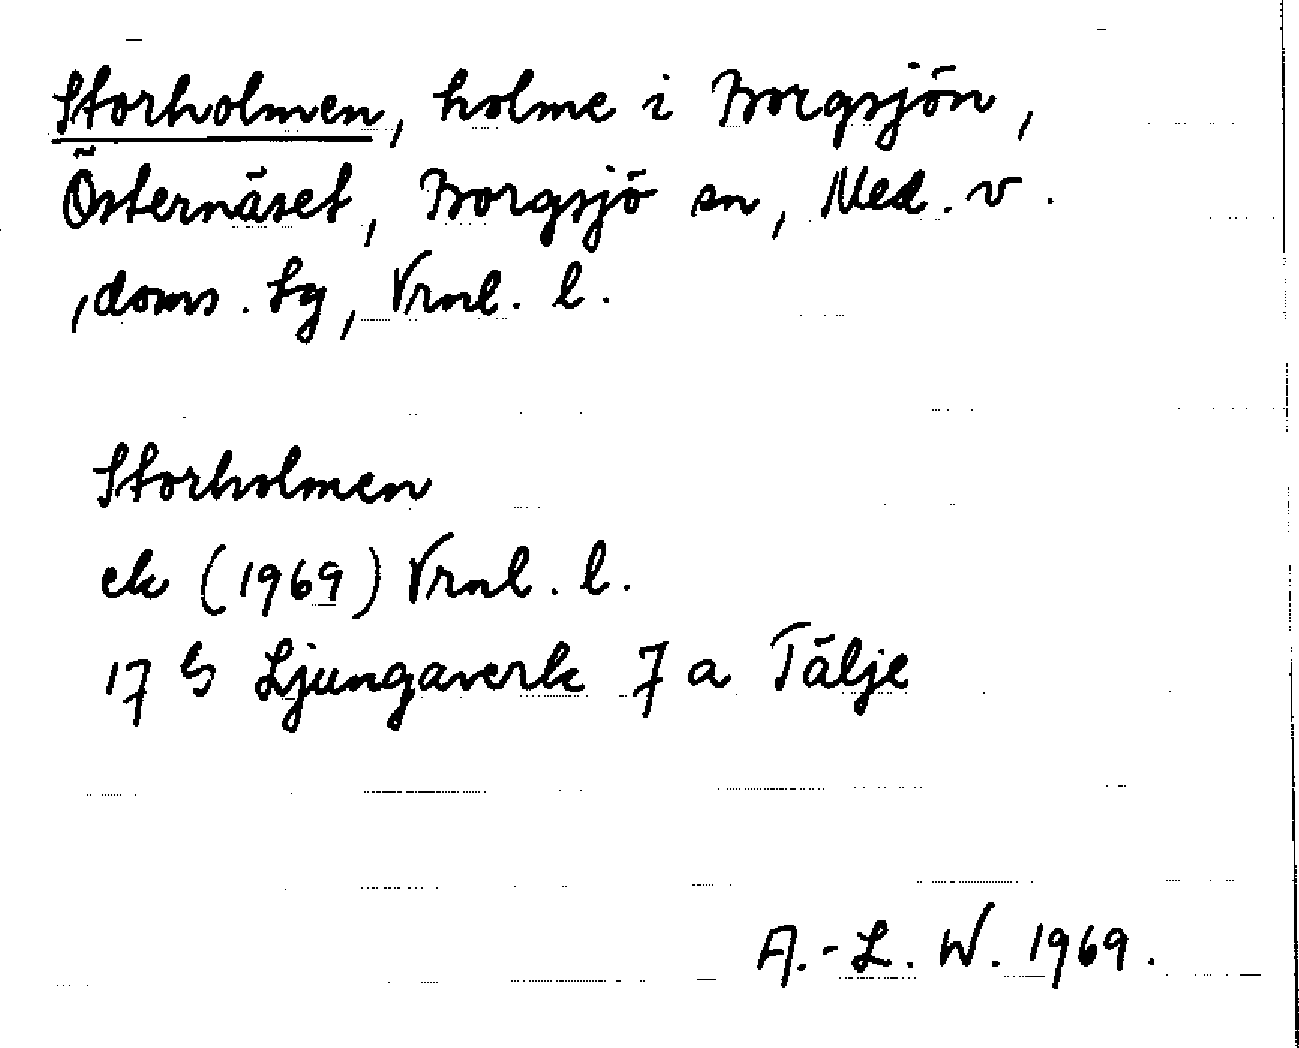 Storholmen, holme i Borgsjön,
Östernäset, Borgsjö sn, Med. v.
, doms. sg, Vrnl. l.
Storholmen
ek (1969) Vrnl. l.
17 G Ljungaverk 7 a Tälje
A.-L. W. 1969.